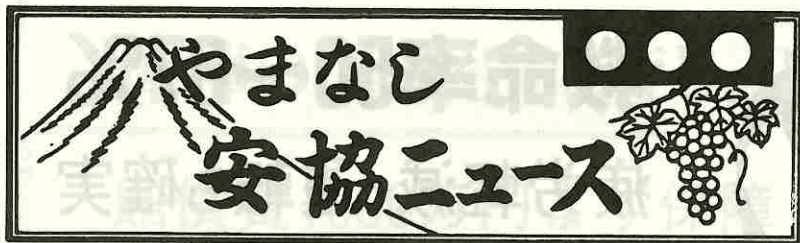 やまなし
安協ニュース